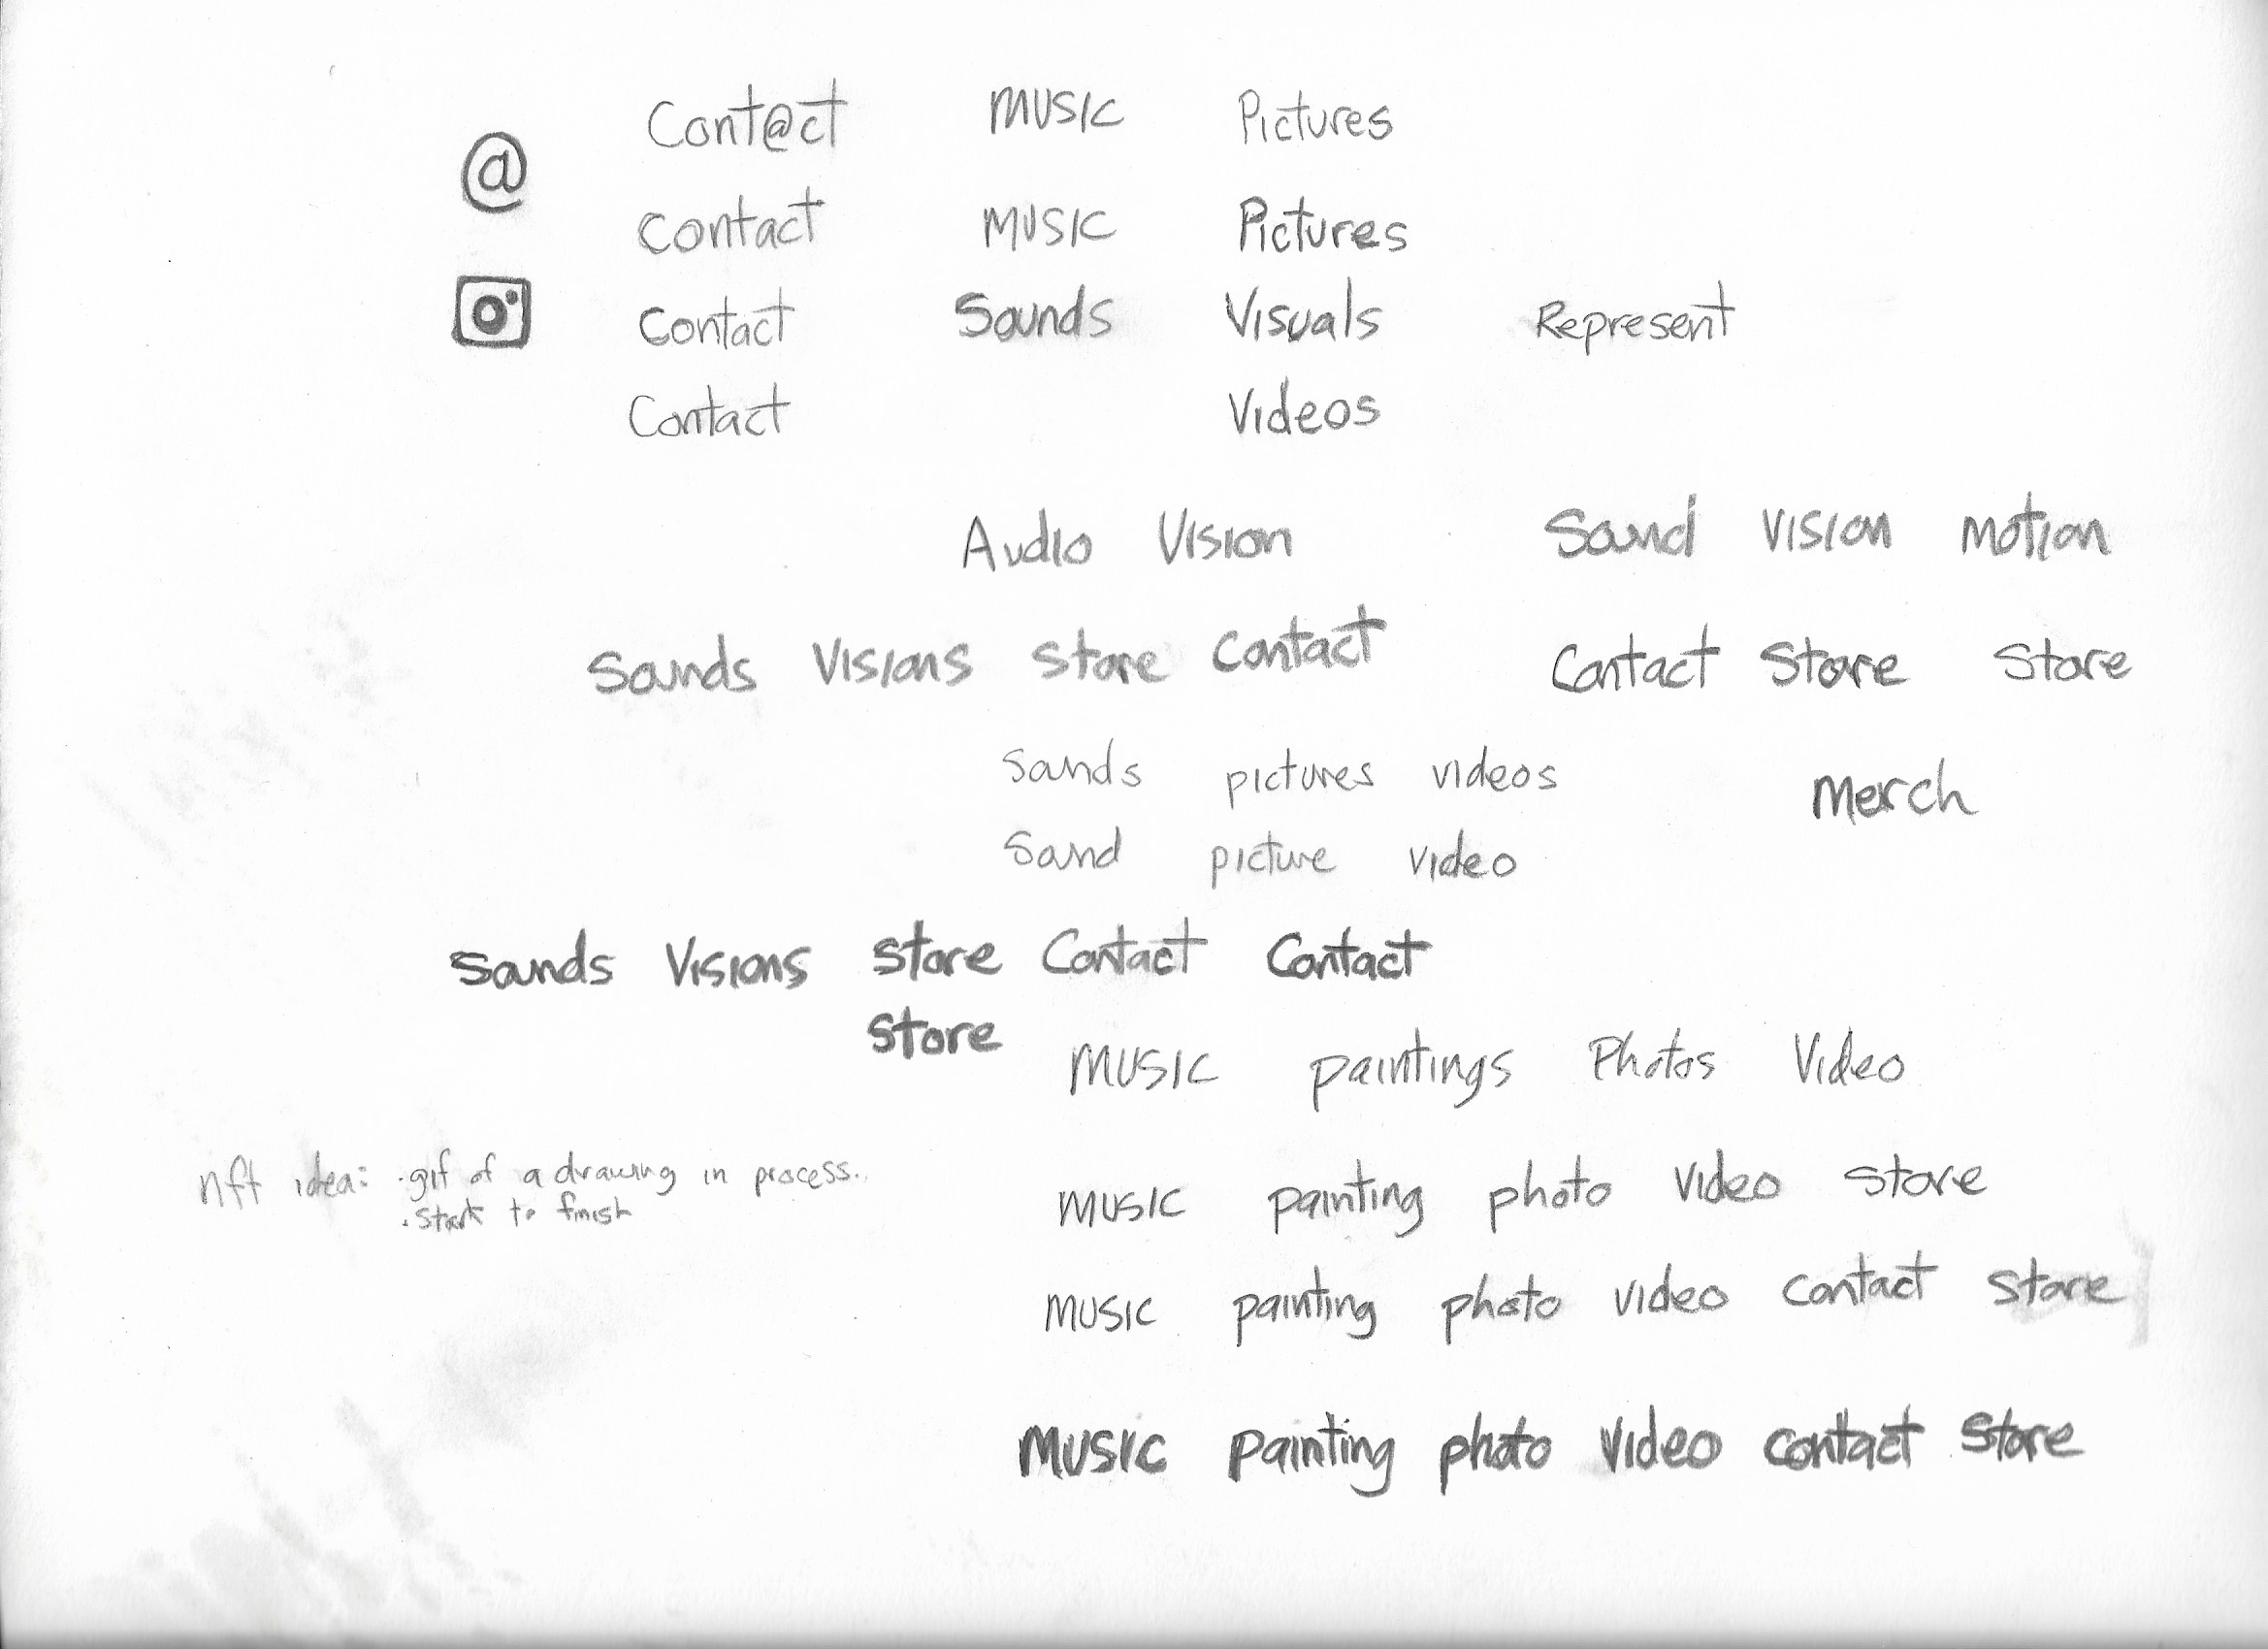 Cont@ct MUSIC Pictures
@
Contact MUSIC Pictures
Contact Sounds Visuals Represent
Contact Videos
Audio Vision Sound Vision Motion
Sounds Visions Store Contact Contact Store Store
Sounds pictures videos Merch
Sound picture video
Sounds Visions Store Contact Contact
Store
MUSIC paintings Photos Video
nft idea: · gif of a drawing in process.
· start to finish
MUSIC painting photo Video Store
MUSIC painting photo video contact Store
MUSIC painting photo Video contact Store